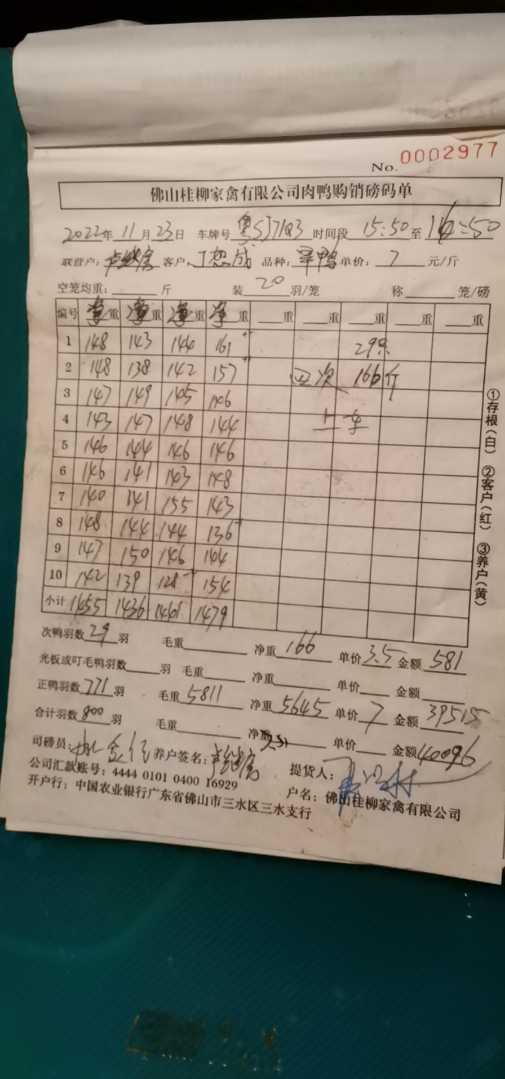 No. 0002977
佛山桂柳家禽有限公司肉鸭购销磅码单
2022年 11月 23日 车牌号 时间段 15:50 至 16:50
联营户: 客户: 品种: 单价: 7 元/斤
空笼均重: 斤 装 20 羽/笼 称 笼/磅
编号 重 重 重 净重 重 重 重 重 重
1 148 143 144 161 29只
2 148 138 142 157 四次 166斤
3 147 149 145 146
4 143 147 148 144 上车
5 146 144 146 146
6 146 141 143 148
7 140 141 155 143
8 148 144 144 136
9 147 150 146 144
10 142 139 128 154
小计 1455 1436 1461 1479
①存根(白) ②客户(红) ③养户(黄)
次鸭羽数 29 羽 毛重 净重 166 单价 3.5 金额 581
光板或叮毛鸭羽数 羽 毛重 净重 单价 金额
正鸭羽数 771 羽 毛重 5811 净重 5645 单价 7 金额 39515
合计羽数 800 羽 毛重 净重 单价 金额 40096
司磅员: 养户签名: 提货人:
公司汇款账号: 4444 0101 0400 16929 户名: 佛山桂柳家禽有限公司
开户行: 中国农业银行广东省佛山市三水区三水支行